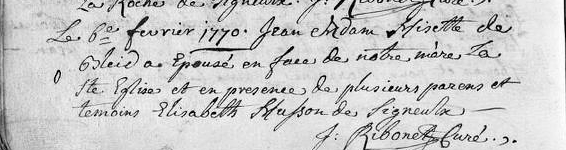 La Roche de Signeulx. J: Ribonet Curé.
Le 6e fevrier 1770. Jean Adam Hisette de
Bleid a Epousé en face de notre mère La
Ste Eglise et en presence de plusieurs parens et
temoins Elisabeth Husson de Signeulx
J: Ribonet Curé.